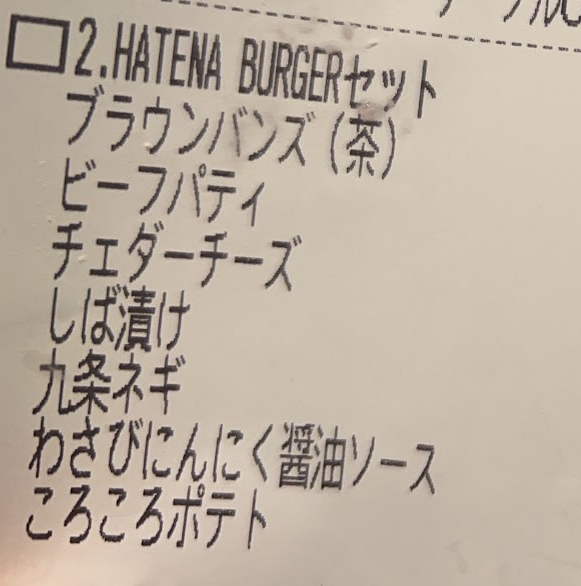 □2.HATENA BURGERセット
ブラウンバンズ(茶)
ビーフパティ
チェダーチーズ
しば漬け
九条ネギ
わさびにんにく醤油ソース
ころころポテト